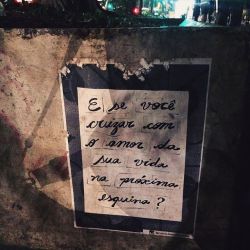 E se você
cruzar com
o amor da
sua vida
na próxima
esquina?